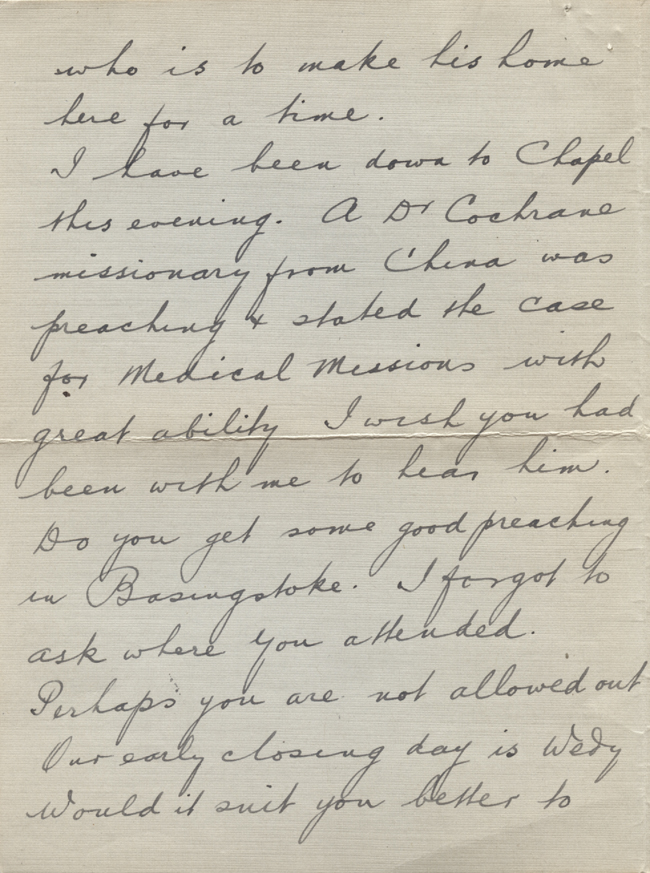 who is to make his home
here for a time.
I have been down to Chapel
this evening. A Dr Cochrane
missionary from China was
preaching & stated the case
for Medical Missions with
great ability I wish you had
been with me to hear him.
Do you get some good preaching
in Basingstoke. I forgot to
ask where you attended.
Perhaps you are not allowed out
Our early closing day is Wedy
Would it suit you better to